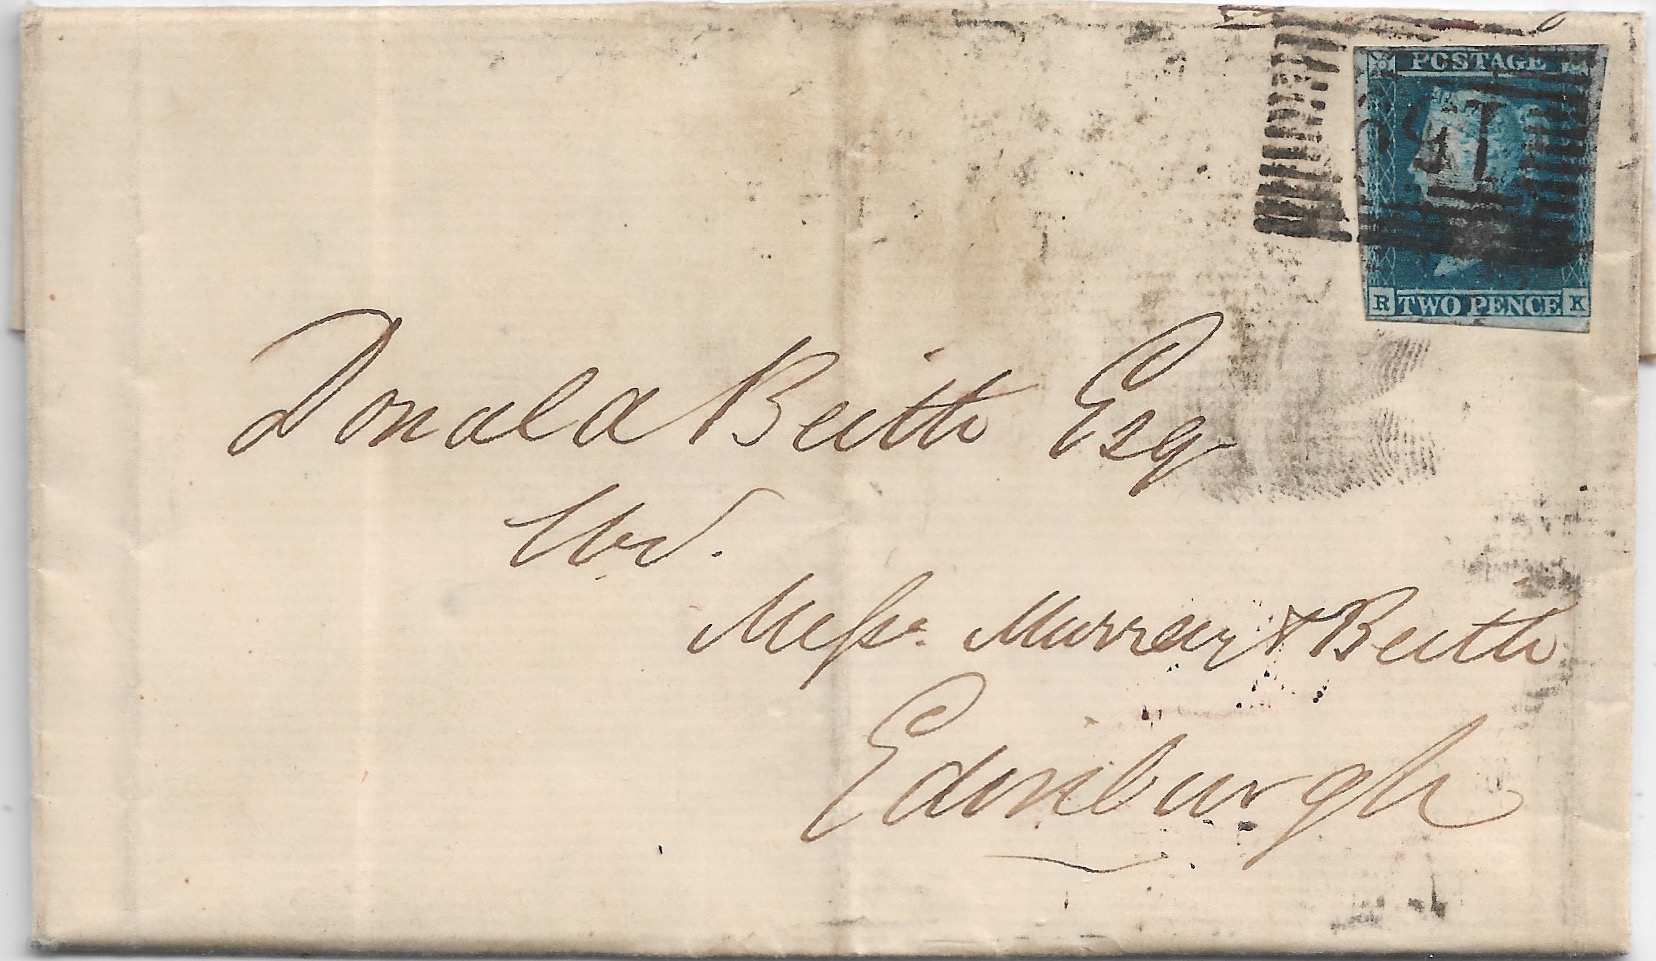 POSTAGE
R TWO PENCE K
Donald Beith Esq
W.S.
Messrs. Murray & Beith
Edinburgh